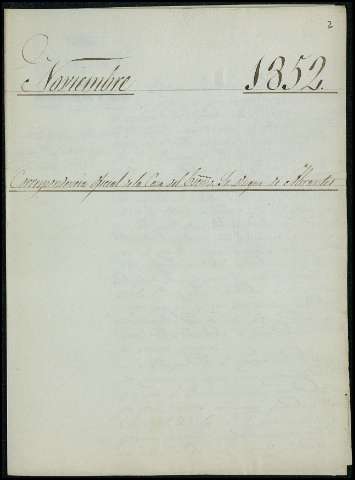 2
Noviembre 1852.
Correspondencia oficial de la Casa del Excmo. Sr. Duque de Abrantes